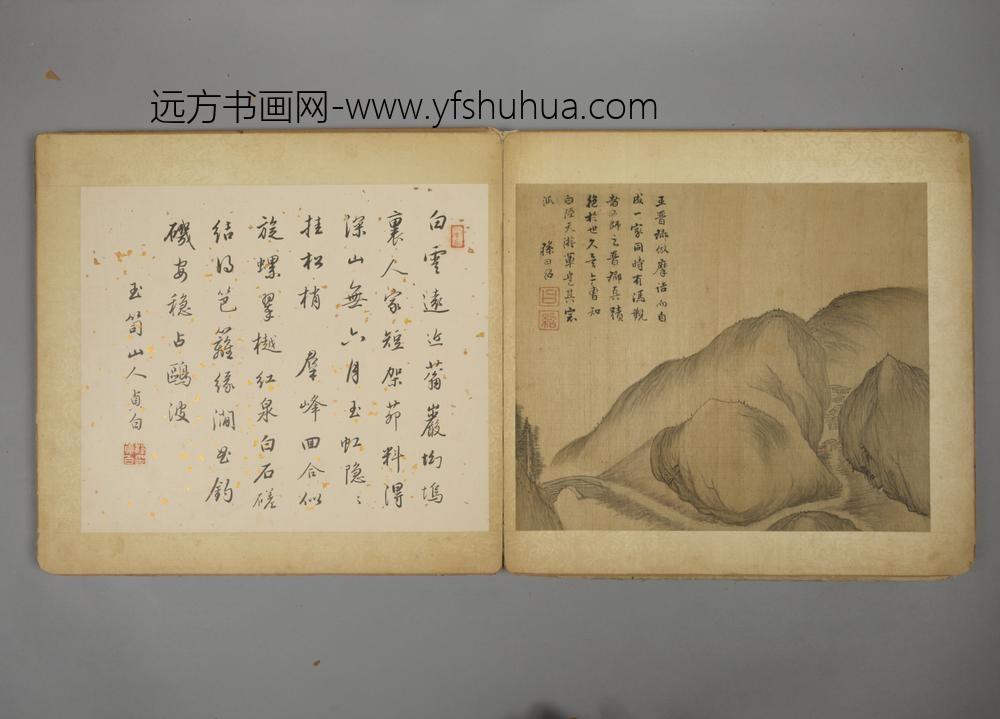 远方书画网-www.yfshuhua.com
王晋卿倣摩诘而自
成一家同時有馮觀
者亦師之晋卿真蹟
絕於世久矣今曹知
白陸天游輩是其宗
派 孫日紹
白雲遠近蕃巖坳塢
裏人家短架茆料得
深山無六月玉虹隐〻
挂松梢 羣峰回合似
旋螺翠樾紅泉白石磋
结得笆籬缘澗曲釣
磯安穩占鷗波
玉笥山人貞白